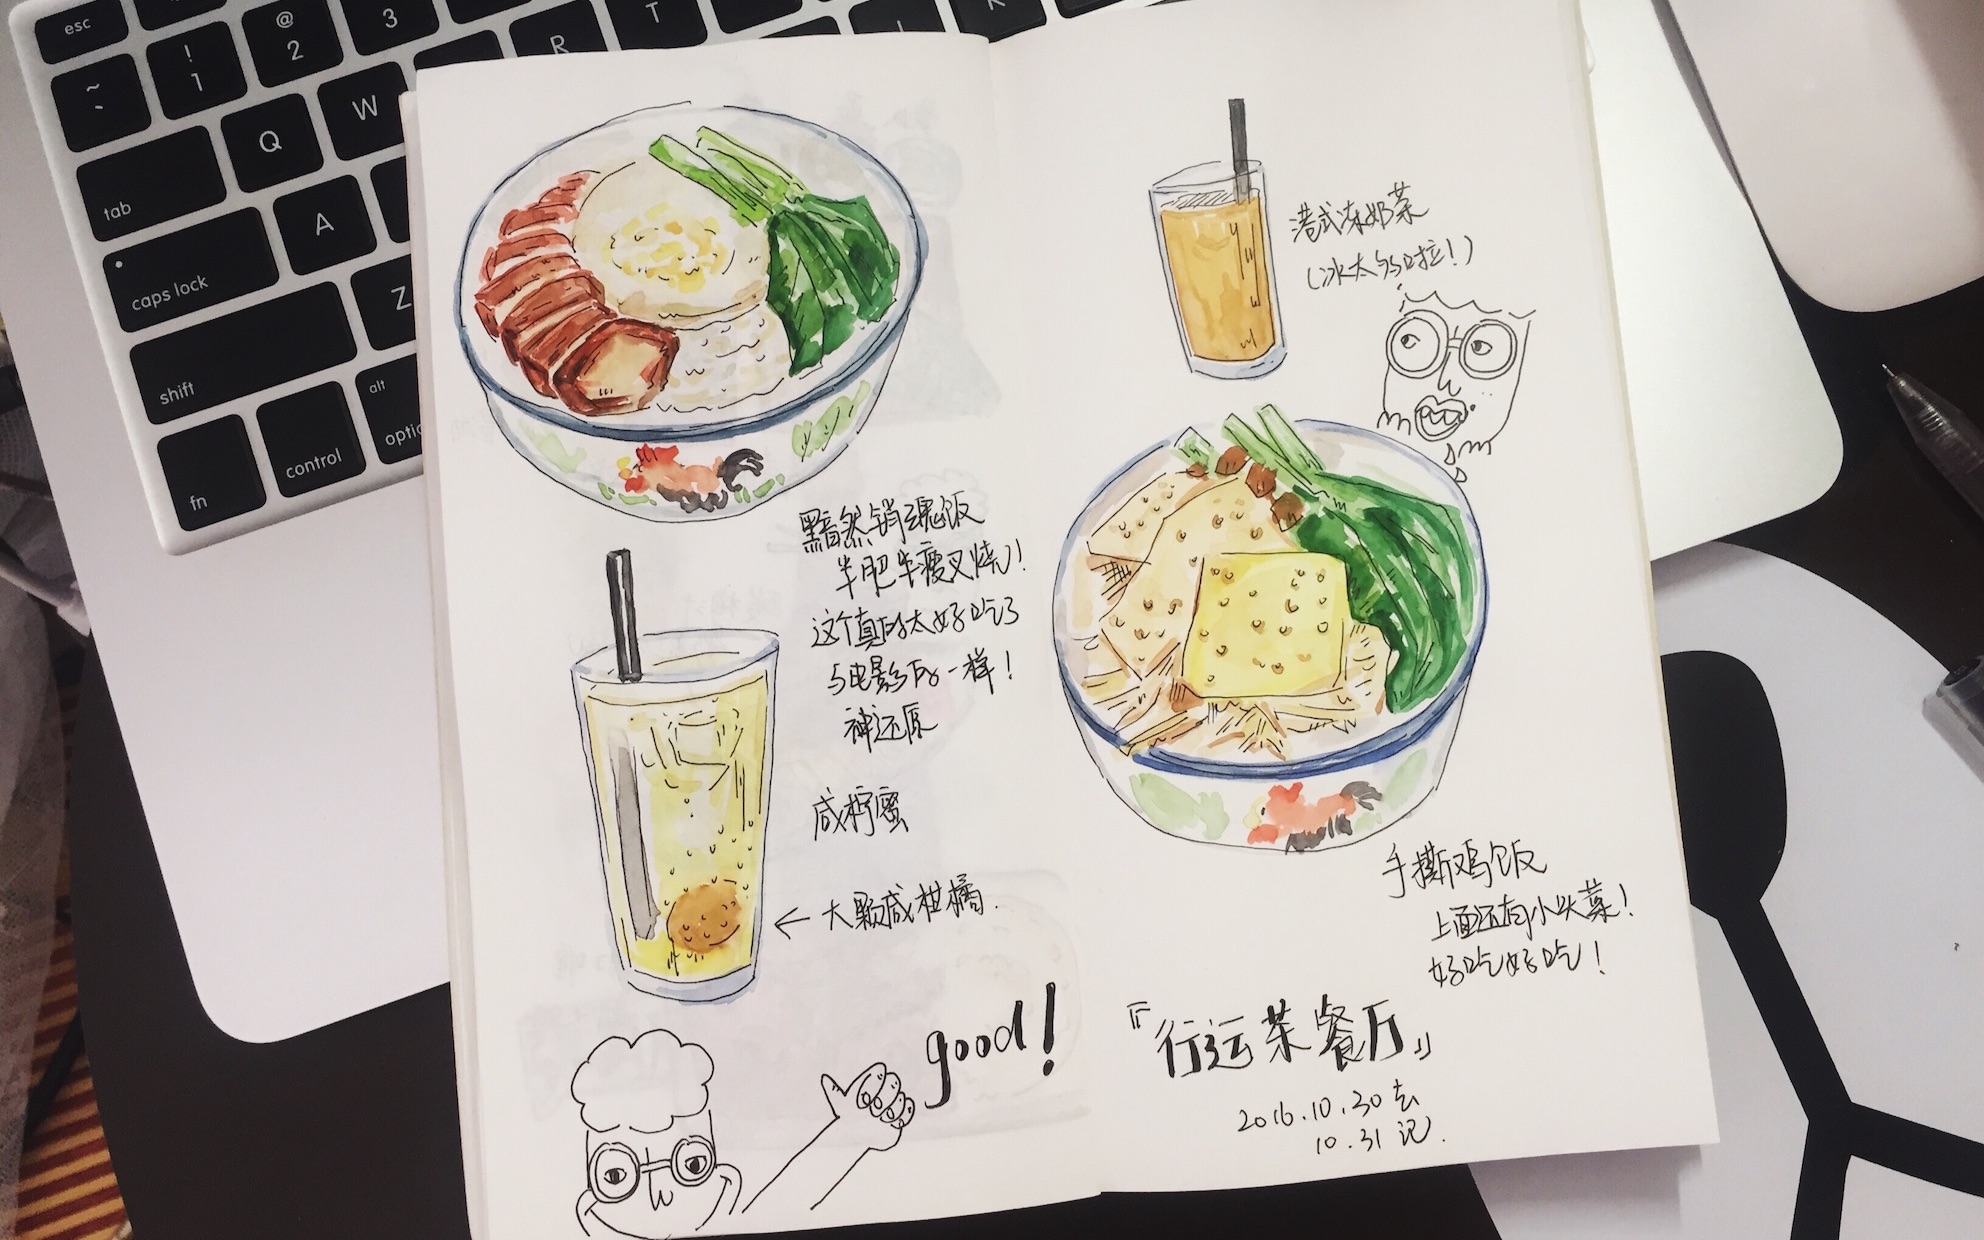 esc
~
`
!
1
@
2
3
Q
W
R
T
tab
A
caps lock
Z
shift
fn
control
alt
黯然销魂饭
半肥半瘦叉烧!
这个真的太好吃了
与电影的一样!
神还原
咸柠蜜
← 大颗咸柑橘.
good!
港式冻奶茶
(冰太多啦!)
手撕鸡饭
上面还有小头菜!
好吃好吃!
『行运茶餐厅』
2016.10.30去
10.31记.